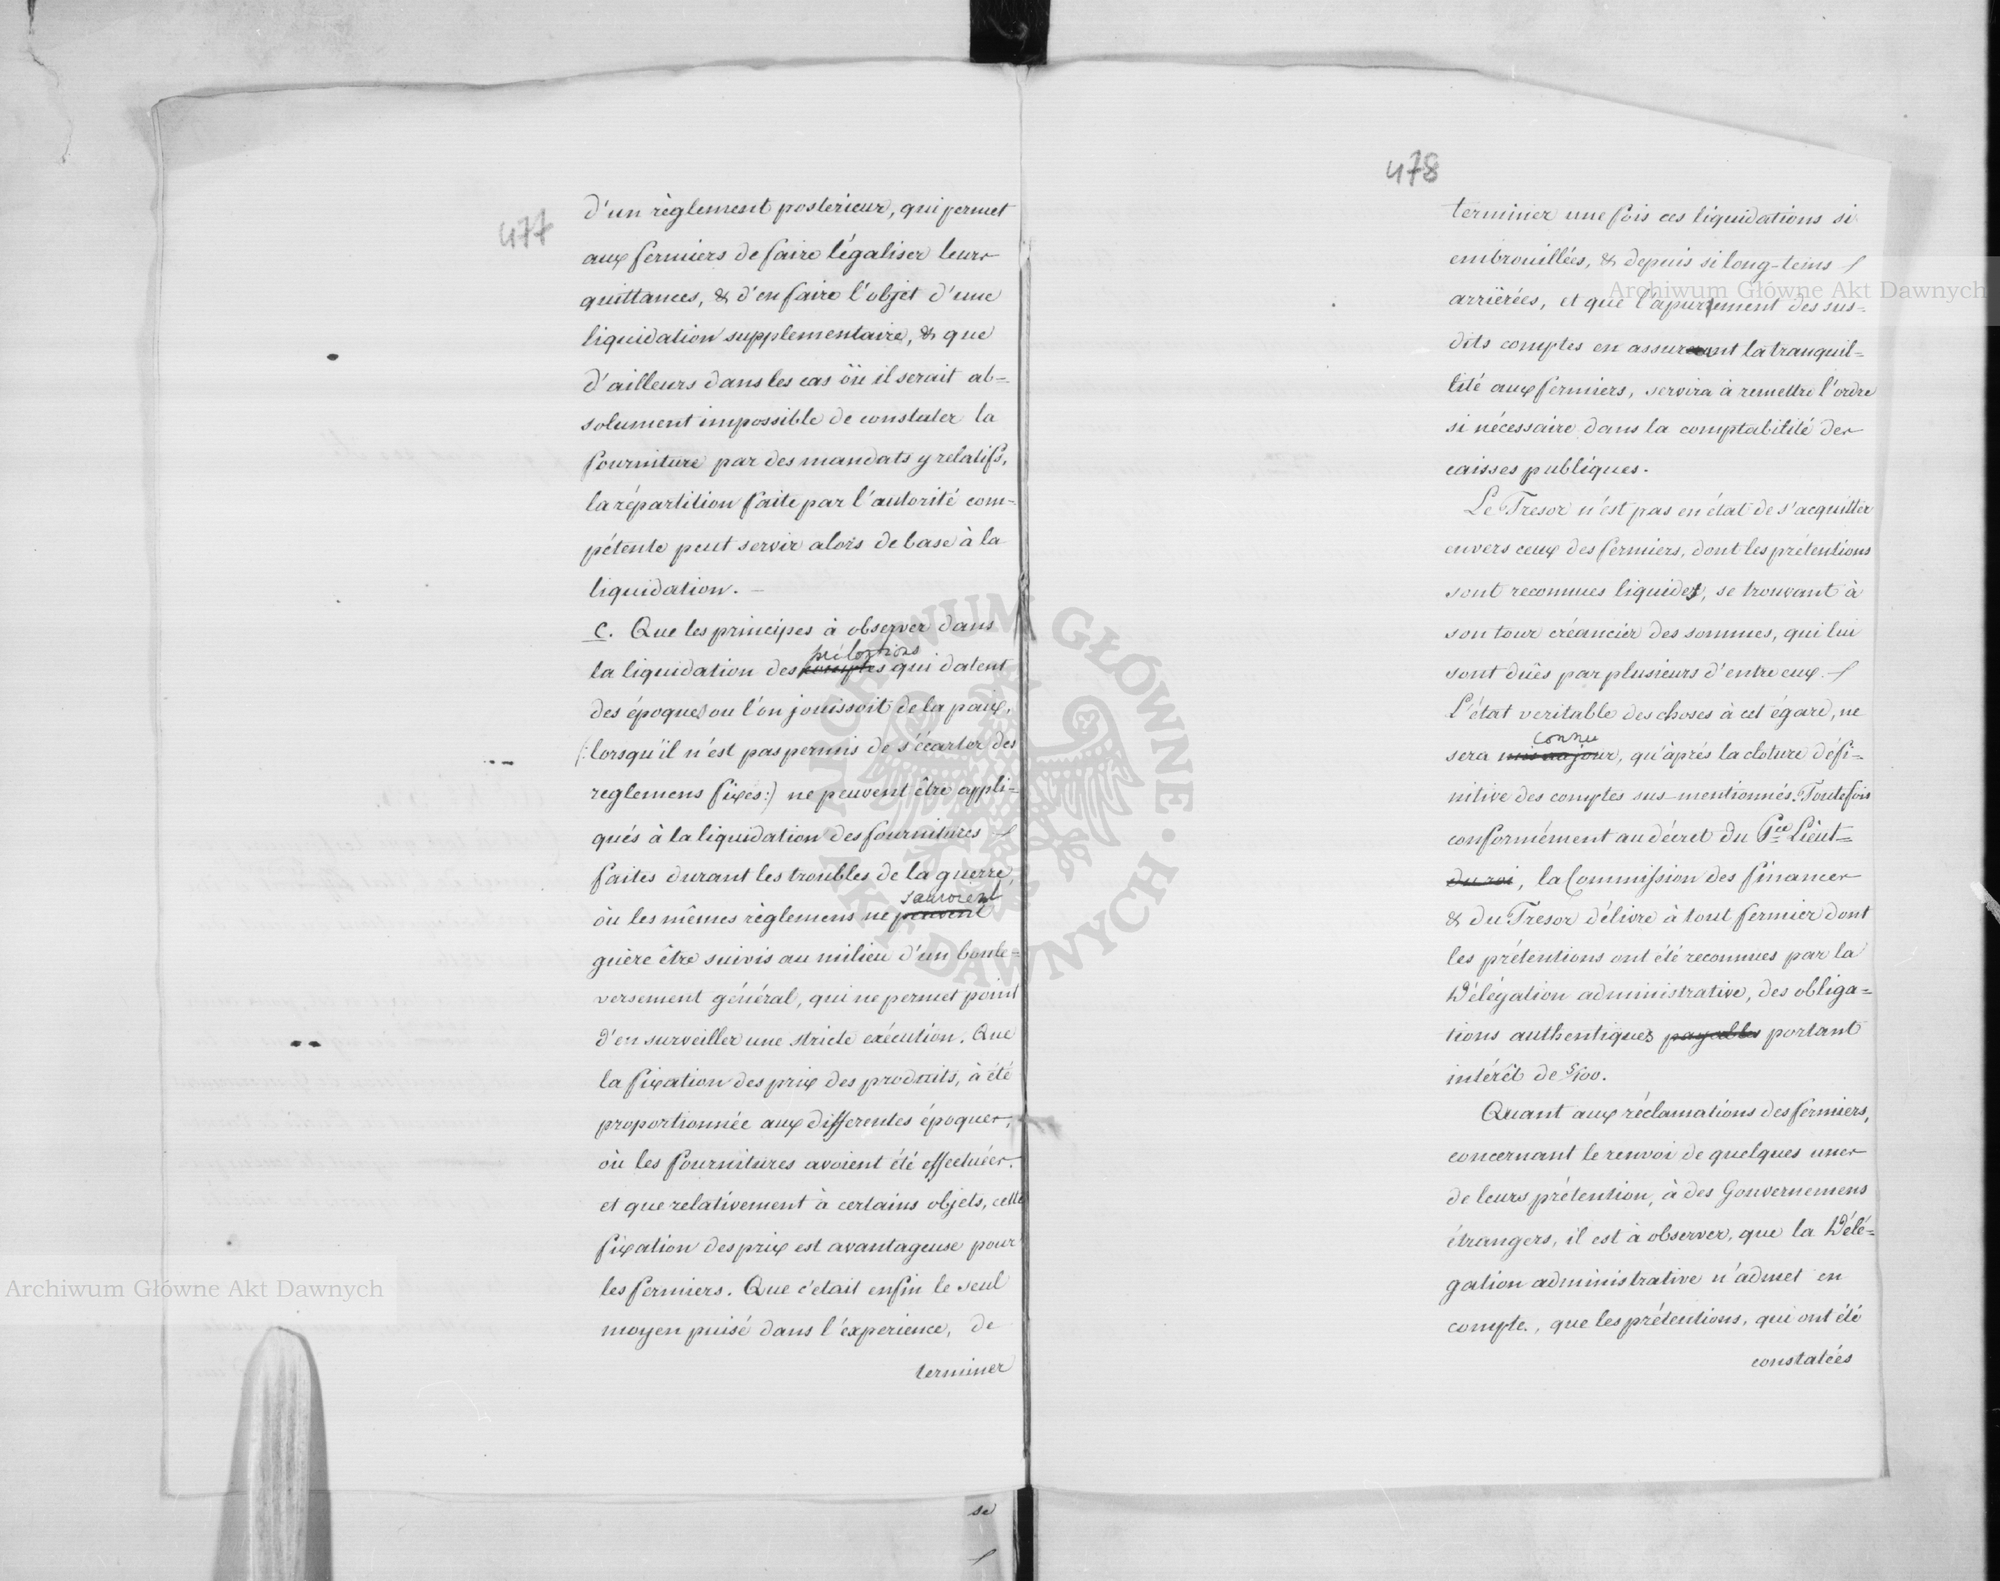 477
d'un règlement posterieur, qui permet
aux fermiers de faire légaliser leurs
quittances, & d'en faire l'objet d'une
liquidation supplementaire, & que
d'ailleurs dans les cas où il serait ab=
solument impossible de constater la
fourniture par des mandats y relatifs,
la répartition faite par l'autorité com=
pétente peut servir alors de base à la
liquidation. —
C. Que les principes à observer dans
prétentions
la liquidation des comptes qui datent
des époques ou l'on jouissoit de la paix,
(: lorsqu'il n'est pas permis de s'écarter des
reglemens fixes:) ne peuvent être appli=
qués à la liquidation des fournitures
faites durant les troubles de la guerre,
sauroient
où les mêmes règlemens ne peuvent
guère être suivis au milieu d'un boule=
versement général, qui ne permet point
d'en surveiller une stricte exécution. Que
la fixation des prix des produits, à été
proportionnée aux differentes époques,
où les fournitures avoient été effectuées.
et que relativement à certains objets, cette
fixation des prix est avantageuse pour
les fermiers. Que c'etait enfin le seul
moyen puisé dans l'experience, de
terminer
478
terminer une fois ces liquidations si
embrouillées, & depuis si long-tems
arriérées, et que l'apurement des sus=
dits comptes en assurant la tranquil=
lité aux fermiers, servira à remettre l'ordre
si nécessaire dans la comptabilité des
caisses publiques.
Le Tresor n'est pas en état de s'acquitter
envers ceux des fermiers, dont les prétentions
sont reconnues liquides, se trouvant à
son tour créancier des sommes, qui lui
sont dûes par plusieurs d'entre eux.
L'état veritable des choses à cet égard, ne
connu
sera mis au jour, qu'après la cloture défi=
nitive des comptes sus-mentionnés. Toutefois
conformément au décret du Pce Lieut=
du roi, la Commission des finances
& du Tresor délivre à tout fermier dont
les prétentions ont été reconnues par la
Délégation administrative, des obliga=
tions authentiques payables portant
intérêt de 5/100.
Quant aux réclamations des fermiers,
concernant le renvoi de quelques unes
de leurs prétention, à des Gouvernemens
étrangers, il est à observer, que la Délé=
gation administrative n'admet en
compte, que les prétentions, qui ont été
constatées
se
Archiwum Główne Akt Dawnych
Archiwum Główne Akt Dawnych
ARCHIWUM GŁÓWNE · AKT DAWNYCH ·